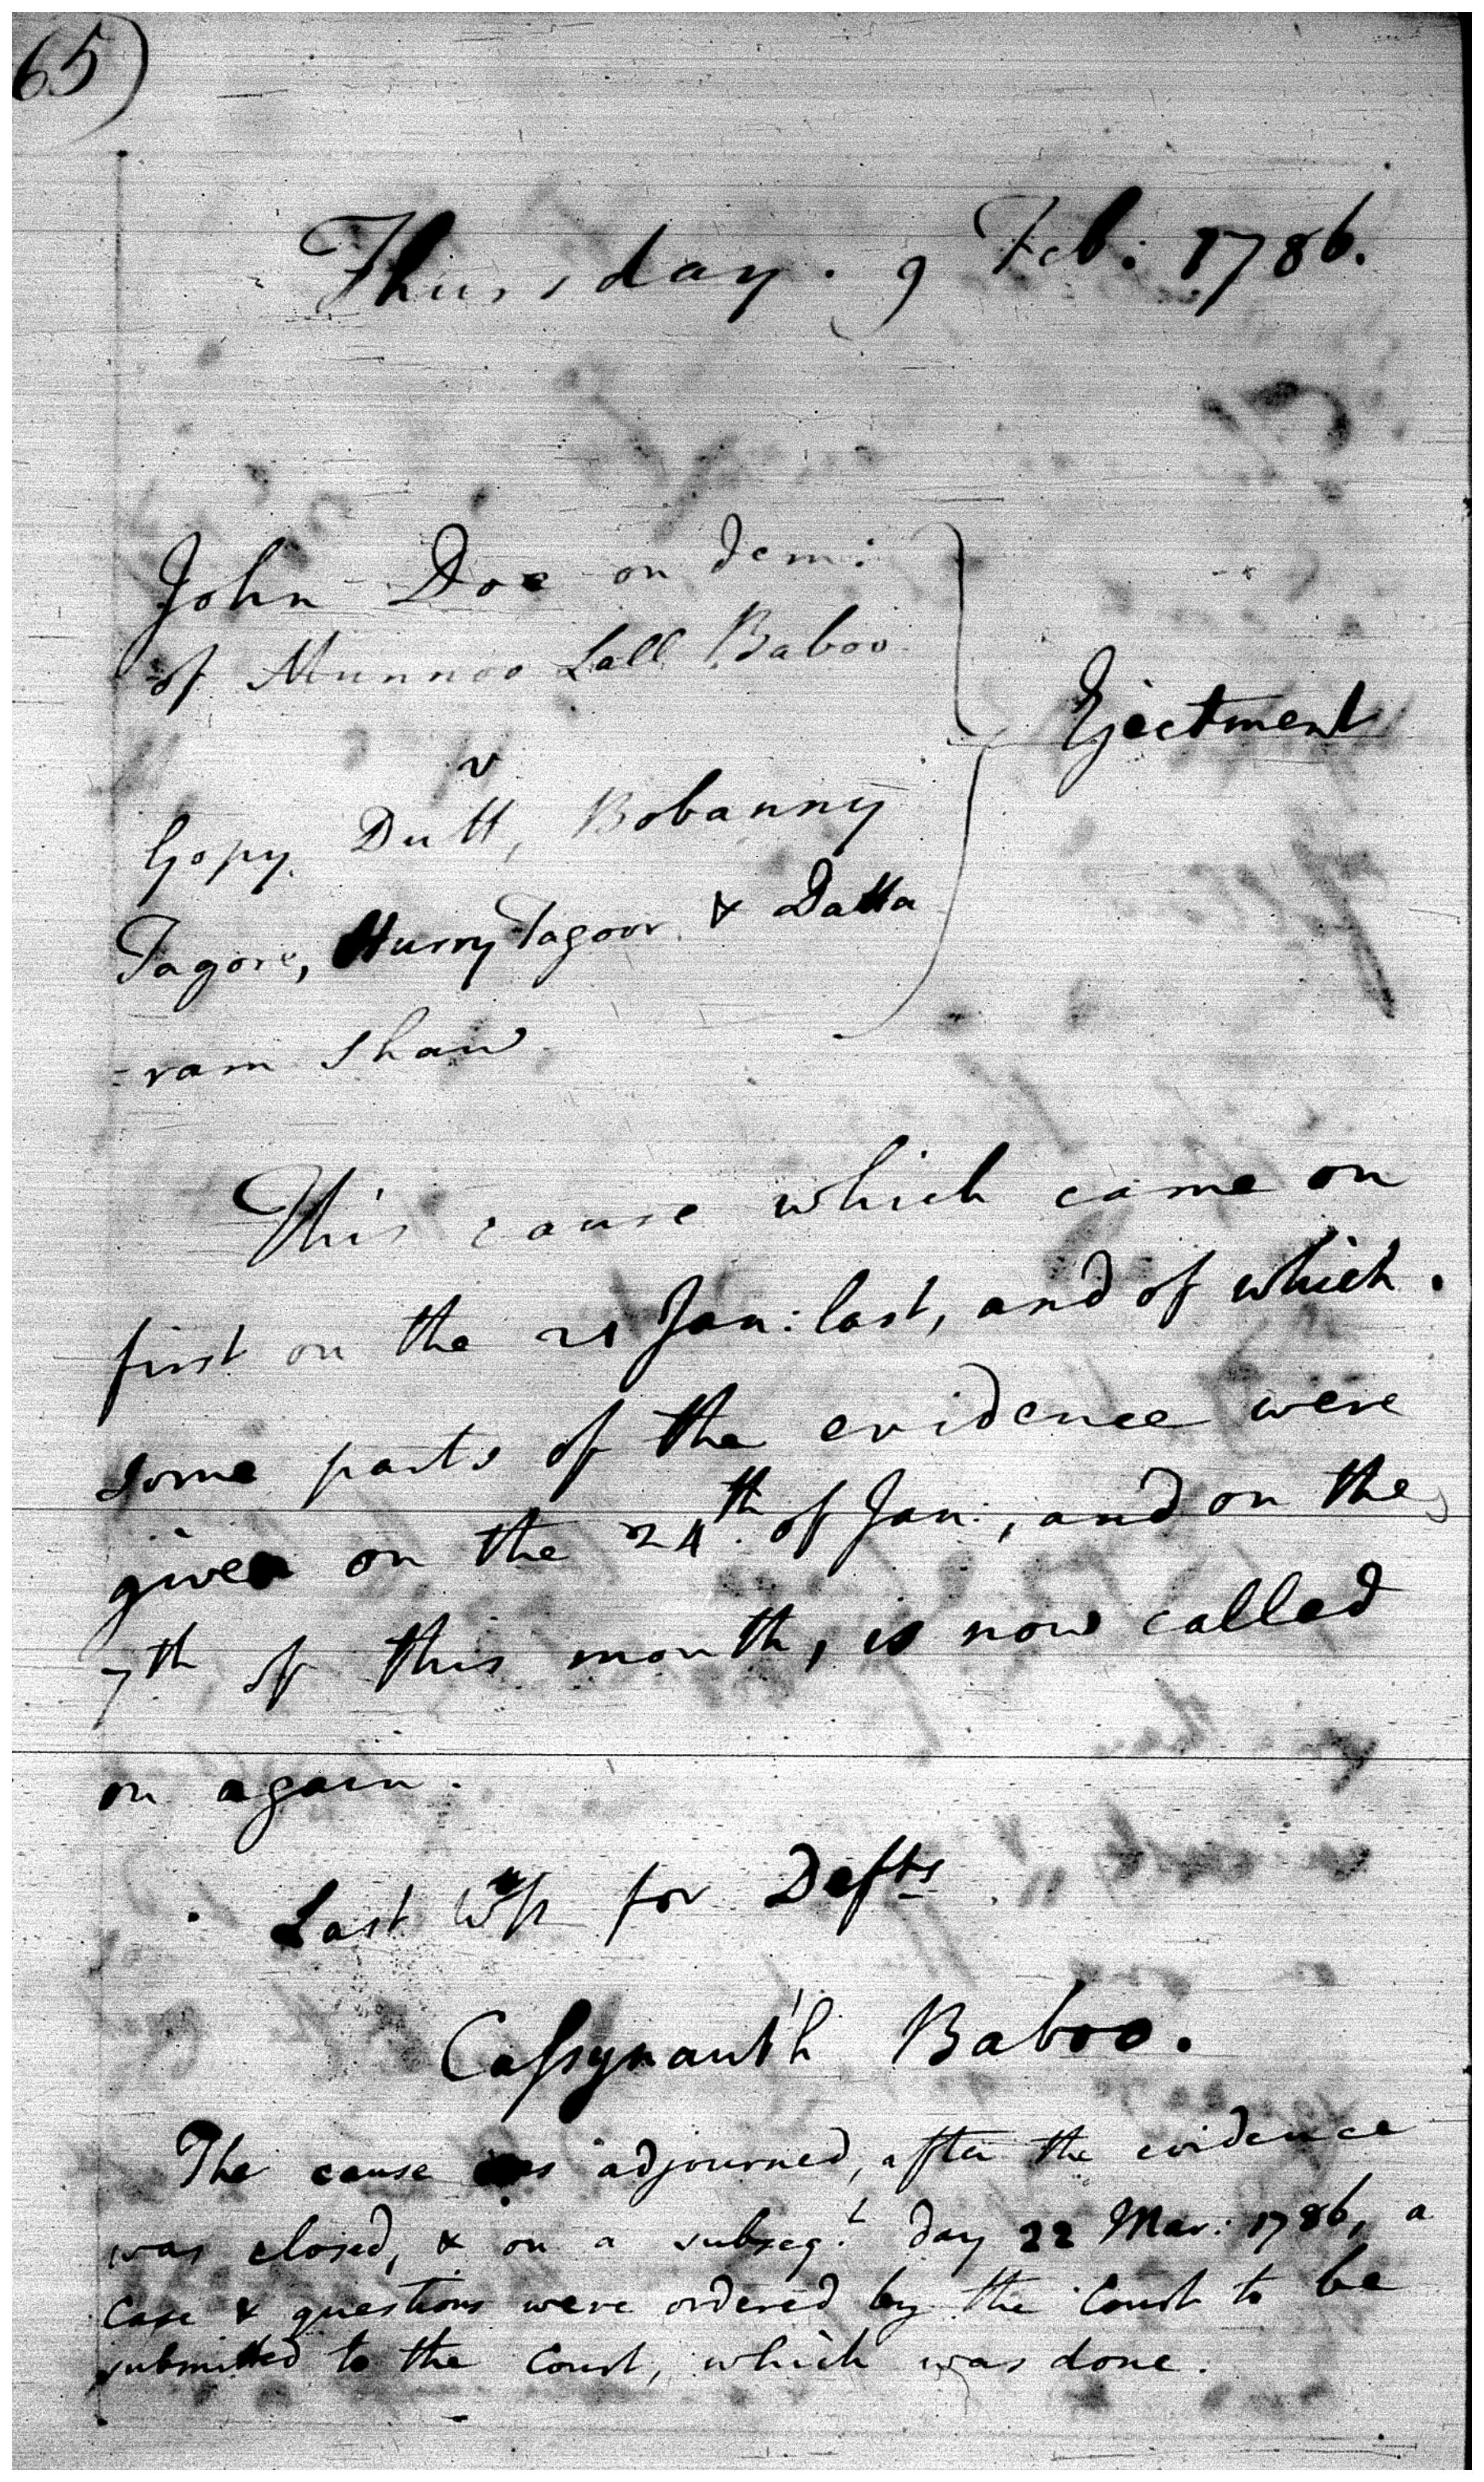 65)
Thursday. 9 Feb: 1786.
John Doe on dem:
of Munnoo Lall Baboo
v
Gopy Dutt, Bobanny
Tagore, Hurry Tagoor & Datta
-ram Shaw.
Ejectment
This cause which came on
first on the 21 Jan: last, and of which
some parts of the evidence were
given on the 24th. of Jan:, and on the
7th of this month, is now called
on again.
Last Wss for Defts
Cassynauth Baboo.
The cause was adjourned, after the evidence
was closed, & on a subseqt. day 22 Mar: 1786, a
case & questions were ordered by the Court to be
submitted to the Court, which was done.